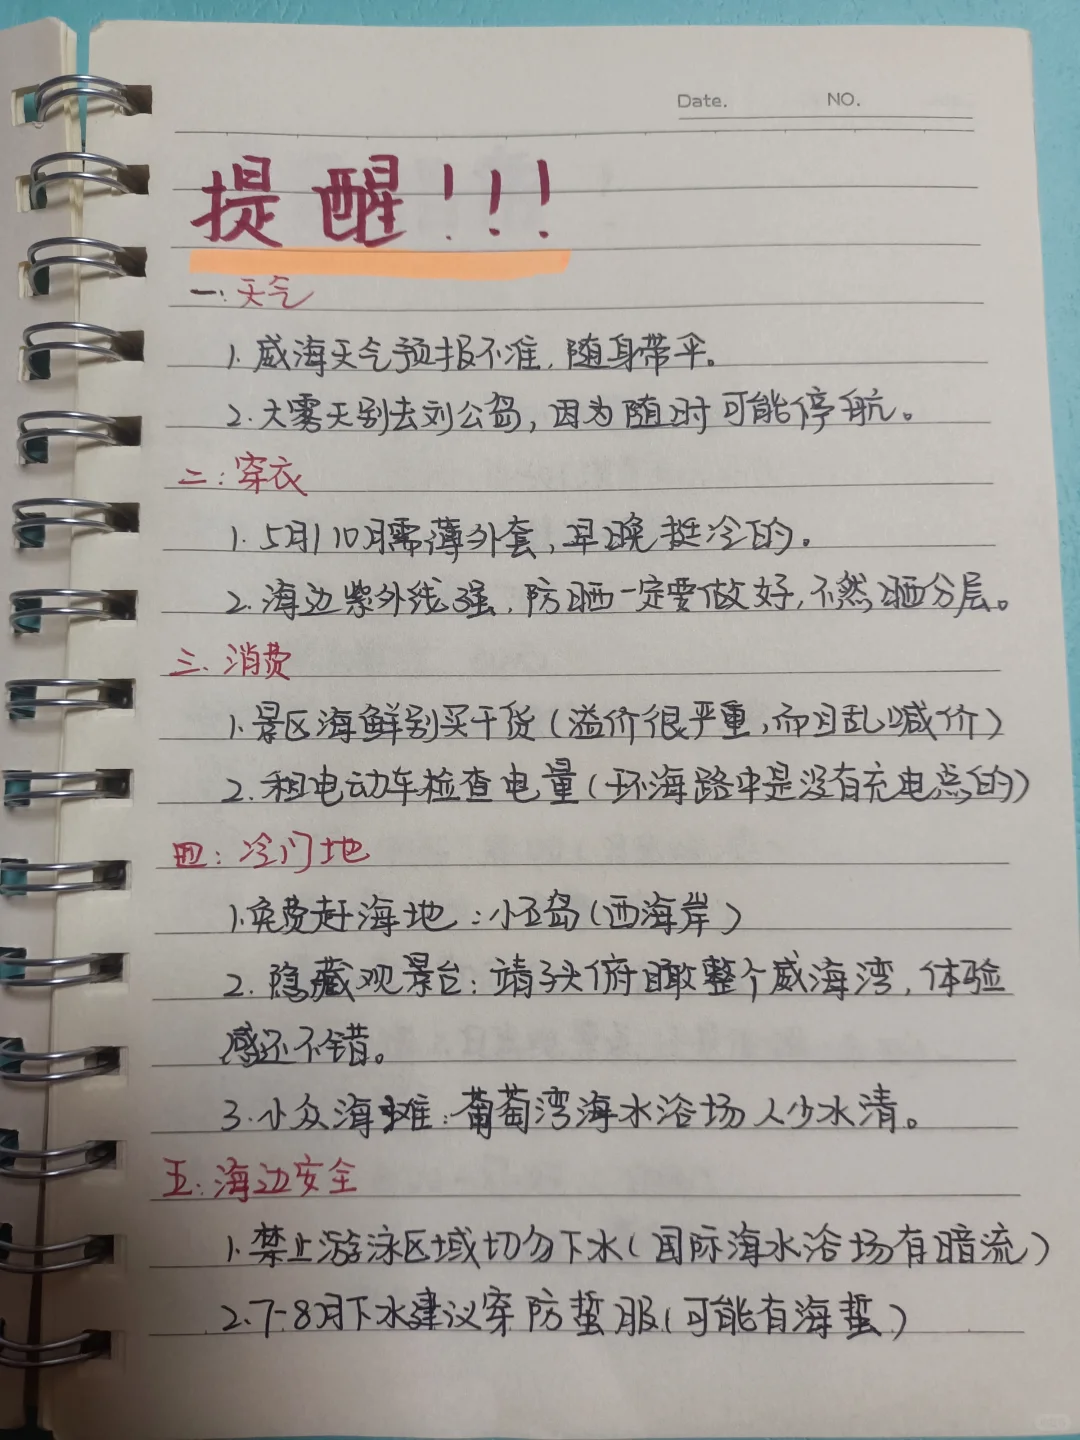 Date. NO.
提醒!!!
一:天气
1.威海天气预报不准,随身带伞。
2.大雾天别去刘公岛,因为随时可能停航。
二:穿衣
1.5月/10月需薄外套,早晚挺冷的。
2.海边紫外线强,防晒一定要做好,不然晒分层。
三.消费
1.景区海鲜别买干货(溢价很严重,而且乱喊价)
2.租电动车检查电量(环海路中是没有充电点的)
四:冷门地
1.免费赶海地:小石岛(西海岸)
2.隐藏观景台:靖子头俯瞰整个威海湾,体验
感还不错。
3.小众海滩:葡萄湾海水浴场人少水清。
五:海边安全
1.禁止游泳区域切勿下水(国际海水浴场有暗流)
2.7-8月下水建议穿防蜇服(可能有海蜇)